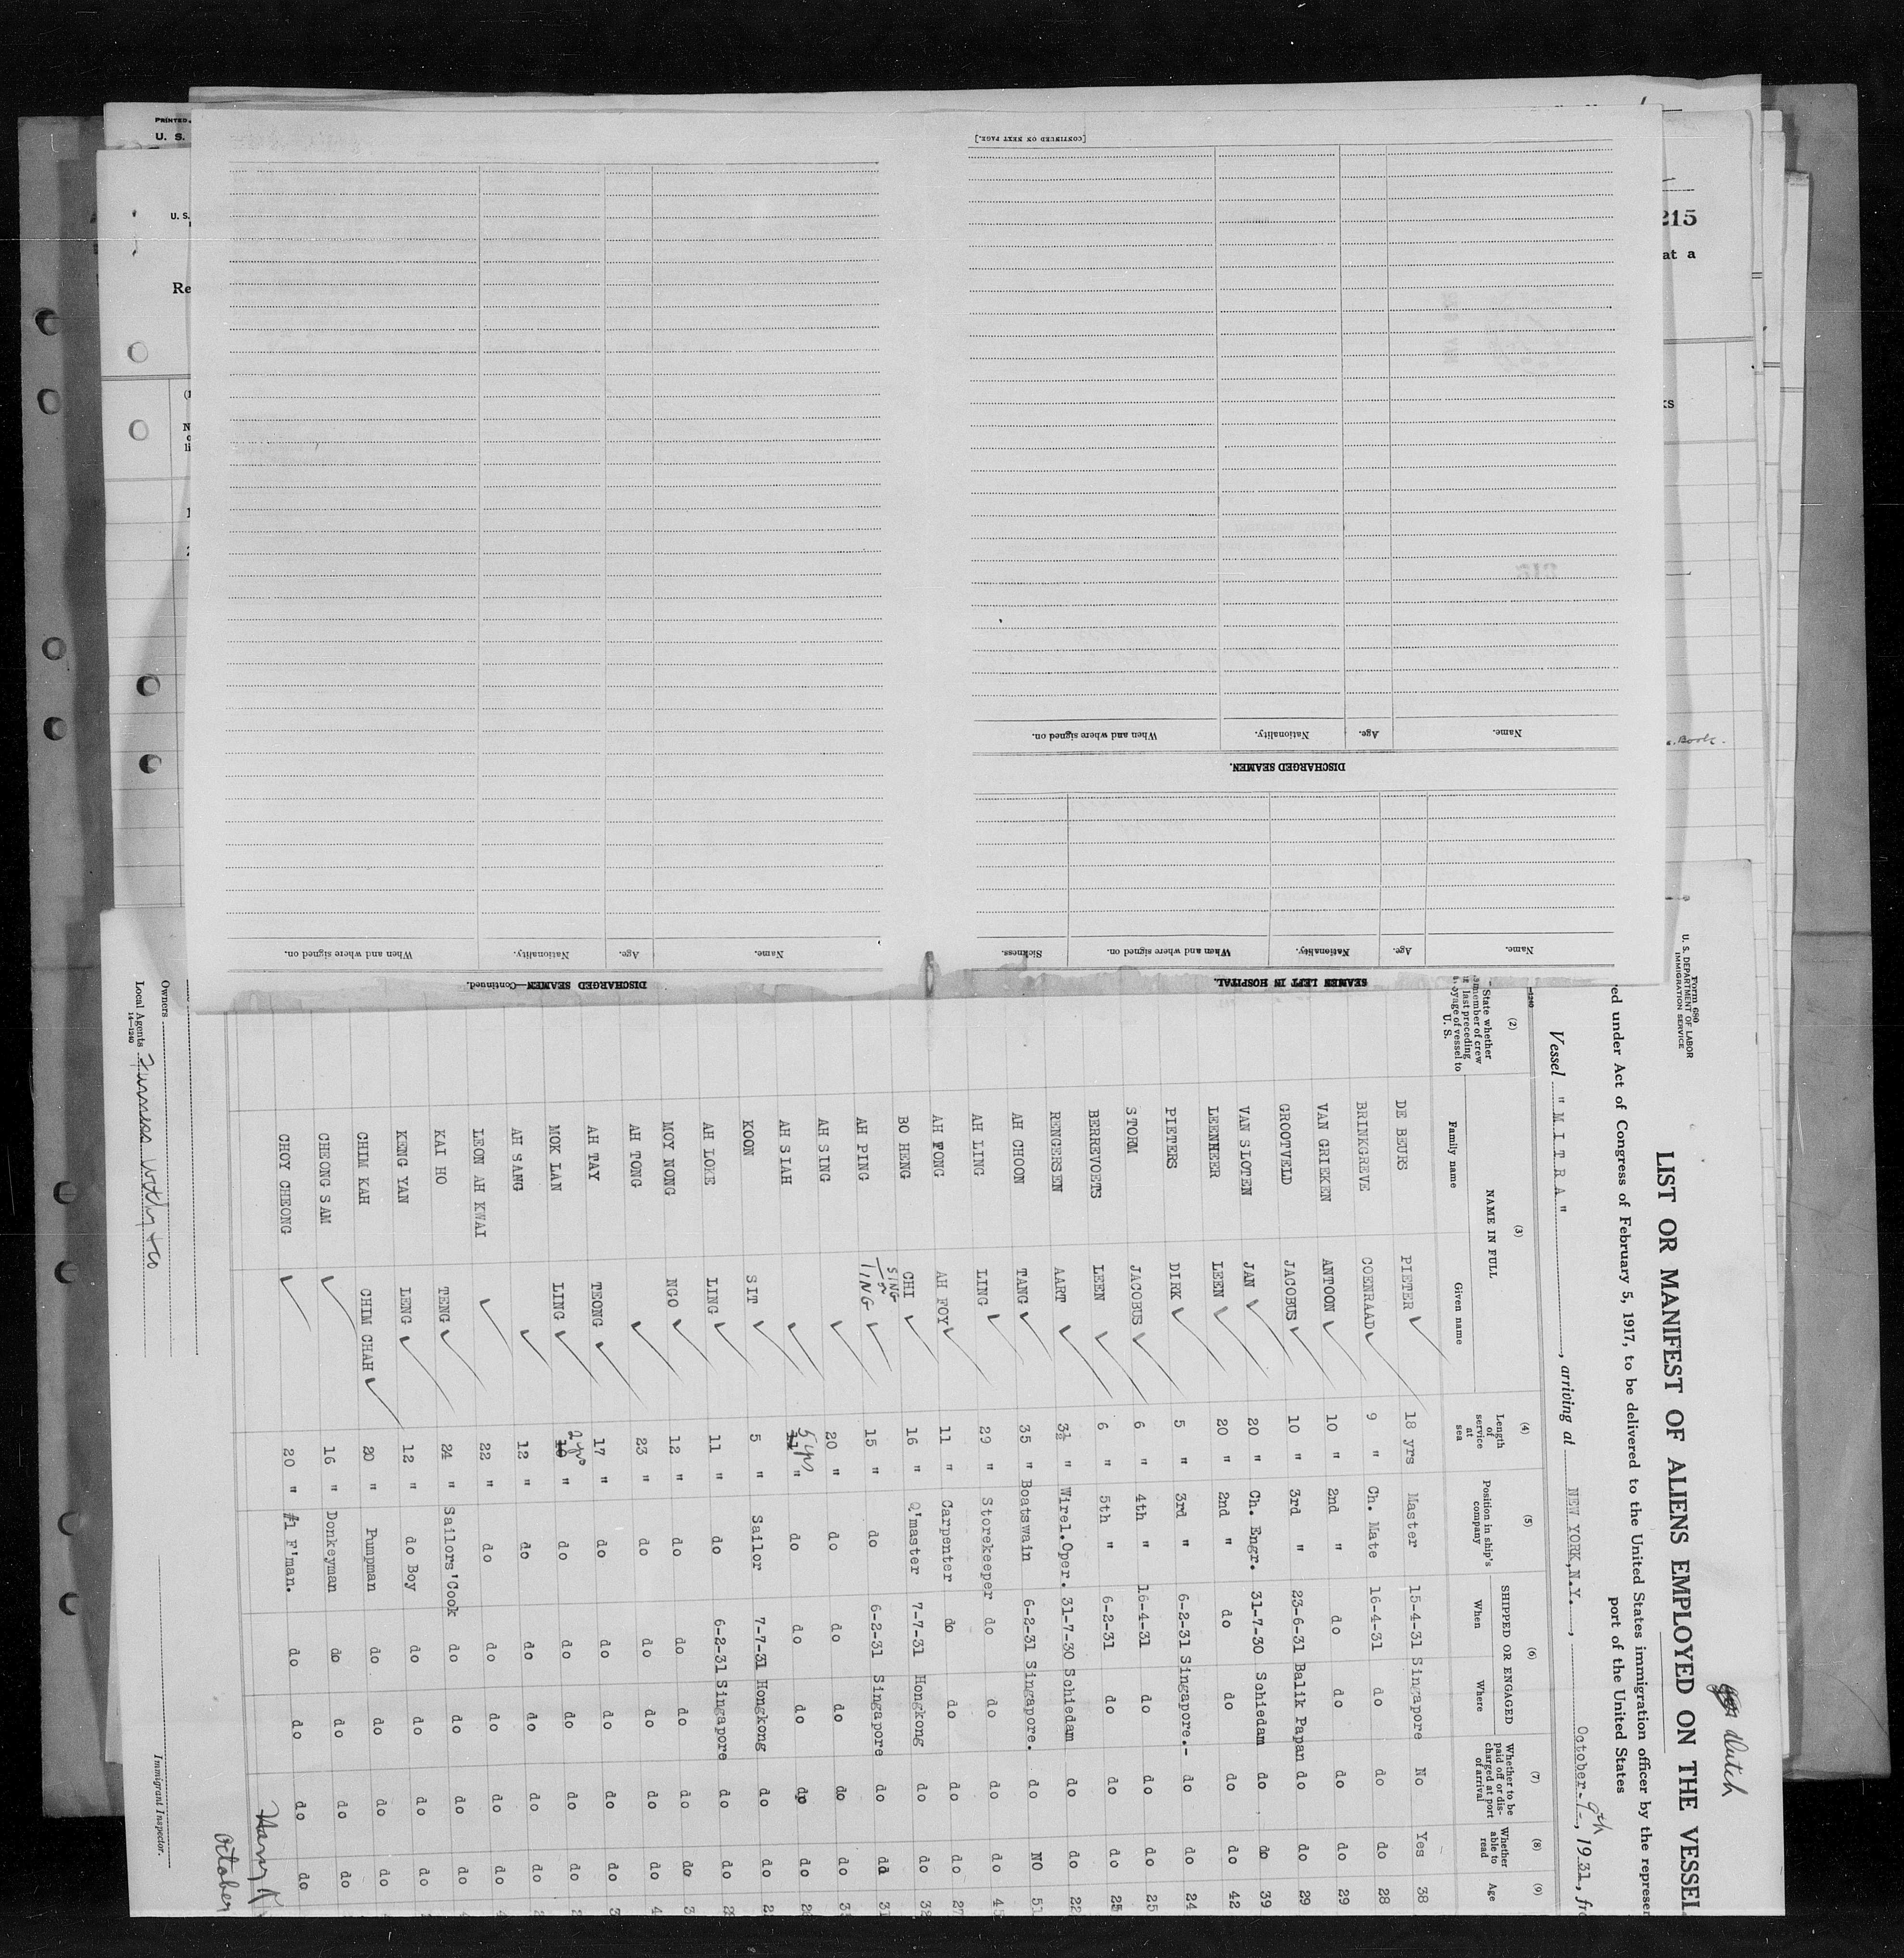 PRINTED
U. S.
U. S.
Re
215
at a
ks
Book.
[CONTINUED ON NEXT PAGE.]
When and where signed on.
Nationality.
Age.
Name.
DISCHARGED SEAMEN.
Sickness.
When and where signed on.
Nationality.
Age.
Name.
SEAMEN LEFT IN HOSPITAL.
When and where signed on.
Nationality.
Age.
Name.
DISCHARGED SEAMEN—Continued.
Form 680
U. S. DEPARTMENT OF LABOR
IMMIGRATION SERVICE
Dutch
LIST OR MANIFEST OF ALIENS EMPLOYED ON THE VESSEL
ed under Act of Congress of February 5, 1917, to be delivered to the United States immigration officer by the represen
port of the United States
Vessel "MITRA", arriving at NEW YORK, N.Y., October-9th-, 1931, fro
(2) (3) (4) (5) (6) (7) (8) (9)
State whether member of crew last preceding voyage of vessel to U. S.
NAME IN FULL
Family name Given name
Length of service at sea
Position in ship's company
SHIPPED OR ENGAGED
When Where
Whether to be paid off or discharged at port of arrival
Whether able to read
Age
DE BEURS PIETER 18 yrs Master 15-4-31 Singapore No Yes 38
BRINKGREVE COENRAAD 9 " Ch. Mate 16-4-31 do do do 28
VAN GRIEKEN ANTOON 10 " 2nd " do do do do 29
GROOTVELD JACOBUS 10 " 3rd " 23-6-31 Balik Papan do do 29
VAN SLOTEN JAN 20 " Ch. Engr. 31-7-30 Schiedam do do 39
LEENHEER LEEN 20 " 2nd " do do do do 42
PIETERS DIRK 5 " 3rd " 6-2-31 Singapore.- do do 24
STORM JACOBUS 6 " 4th " 16-4-31 do do do 25
BERREVOETS LEEN 6 " 5th " 6-2-31 do do do 25
RENGERSEN AART 3½ " Wirel.Oper. 31-7-30 Schiedam do do 22
AH CHOON TANG 35 " Boatswain 6-2-31 Singapore. do NO 51
AH LING LING 29 " Storekeeper do do do do 45
AH FONG AH FOY 11 " Carpenter do do do do 27
BO HENG CHI 16 " Q'master 7-7-31 Hongkong do do 32
AH PING SING 15 " do 6-2-31 Singapore do do 31
AH SING 20 " do do do do do
AH SIAH 11 5 yrs " do do do do do
KOON SIT 5 " Sailor 7-7-31 Hongkong do do
AH LOKE LING 11 " do 6-2-31 Singapore do do
MOY NONG NGO 12 " do do do do do
AH TONG 23 " do do do do do
AH TAY TEONG 17 " do do do do do
MOK LAN LING 10 2 yrs " do do do do do
AH SANG 12 " do do do do do
LEON AH KWAI 22 " do do do do do
KAI HO TENG 24 " Sailors'Cook do do do do
KENG YAN LENG 12 " do Boy do do do do
CHIM KAH CHIM CHAH 20 " Pumpman do do do do
CHEONG SAM 16 " Donkeyman do do do do
CHOY CHEONG 20 " #1 F'man. do do do do
Harry
October
Owners
Local Agents Furness Withy & Co
14—1240
Immigrant Inspector.